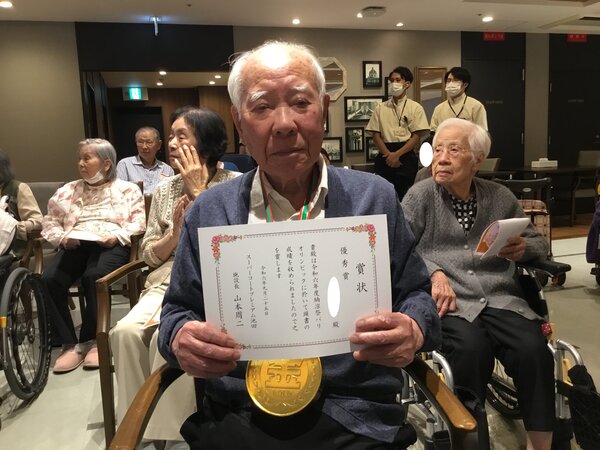 賞状
優秀賞
殿
貴殿は令和六年度納涼祭・パリ
オリンピックに於いて頭書の
成績を収められましたので之
を賞します
令和六年七月二十九日
スーパーコートプレミアム池田
施設長 山本周二